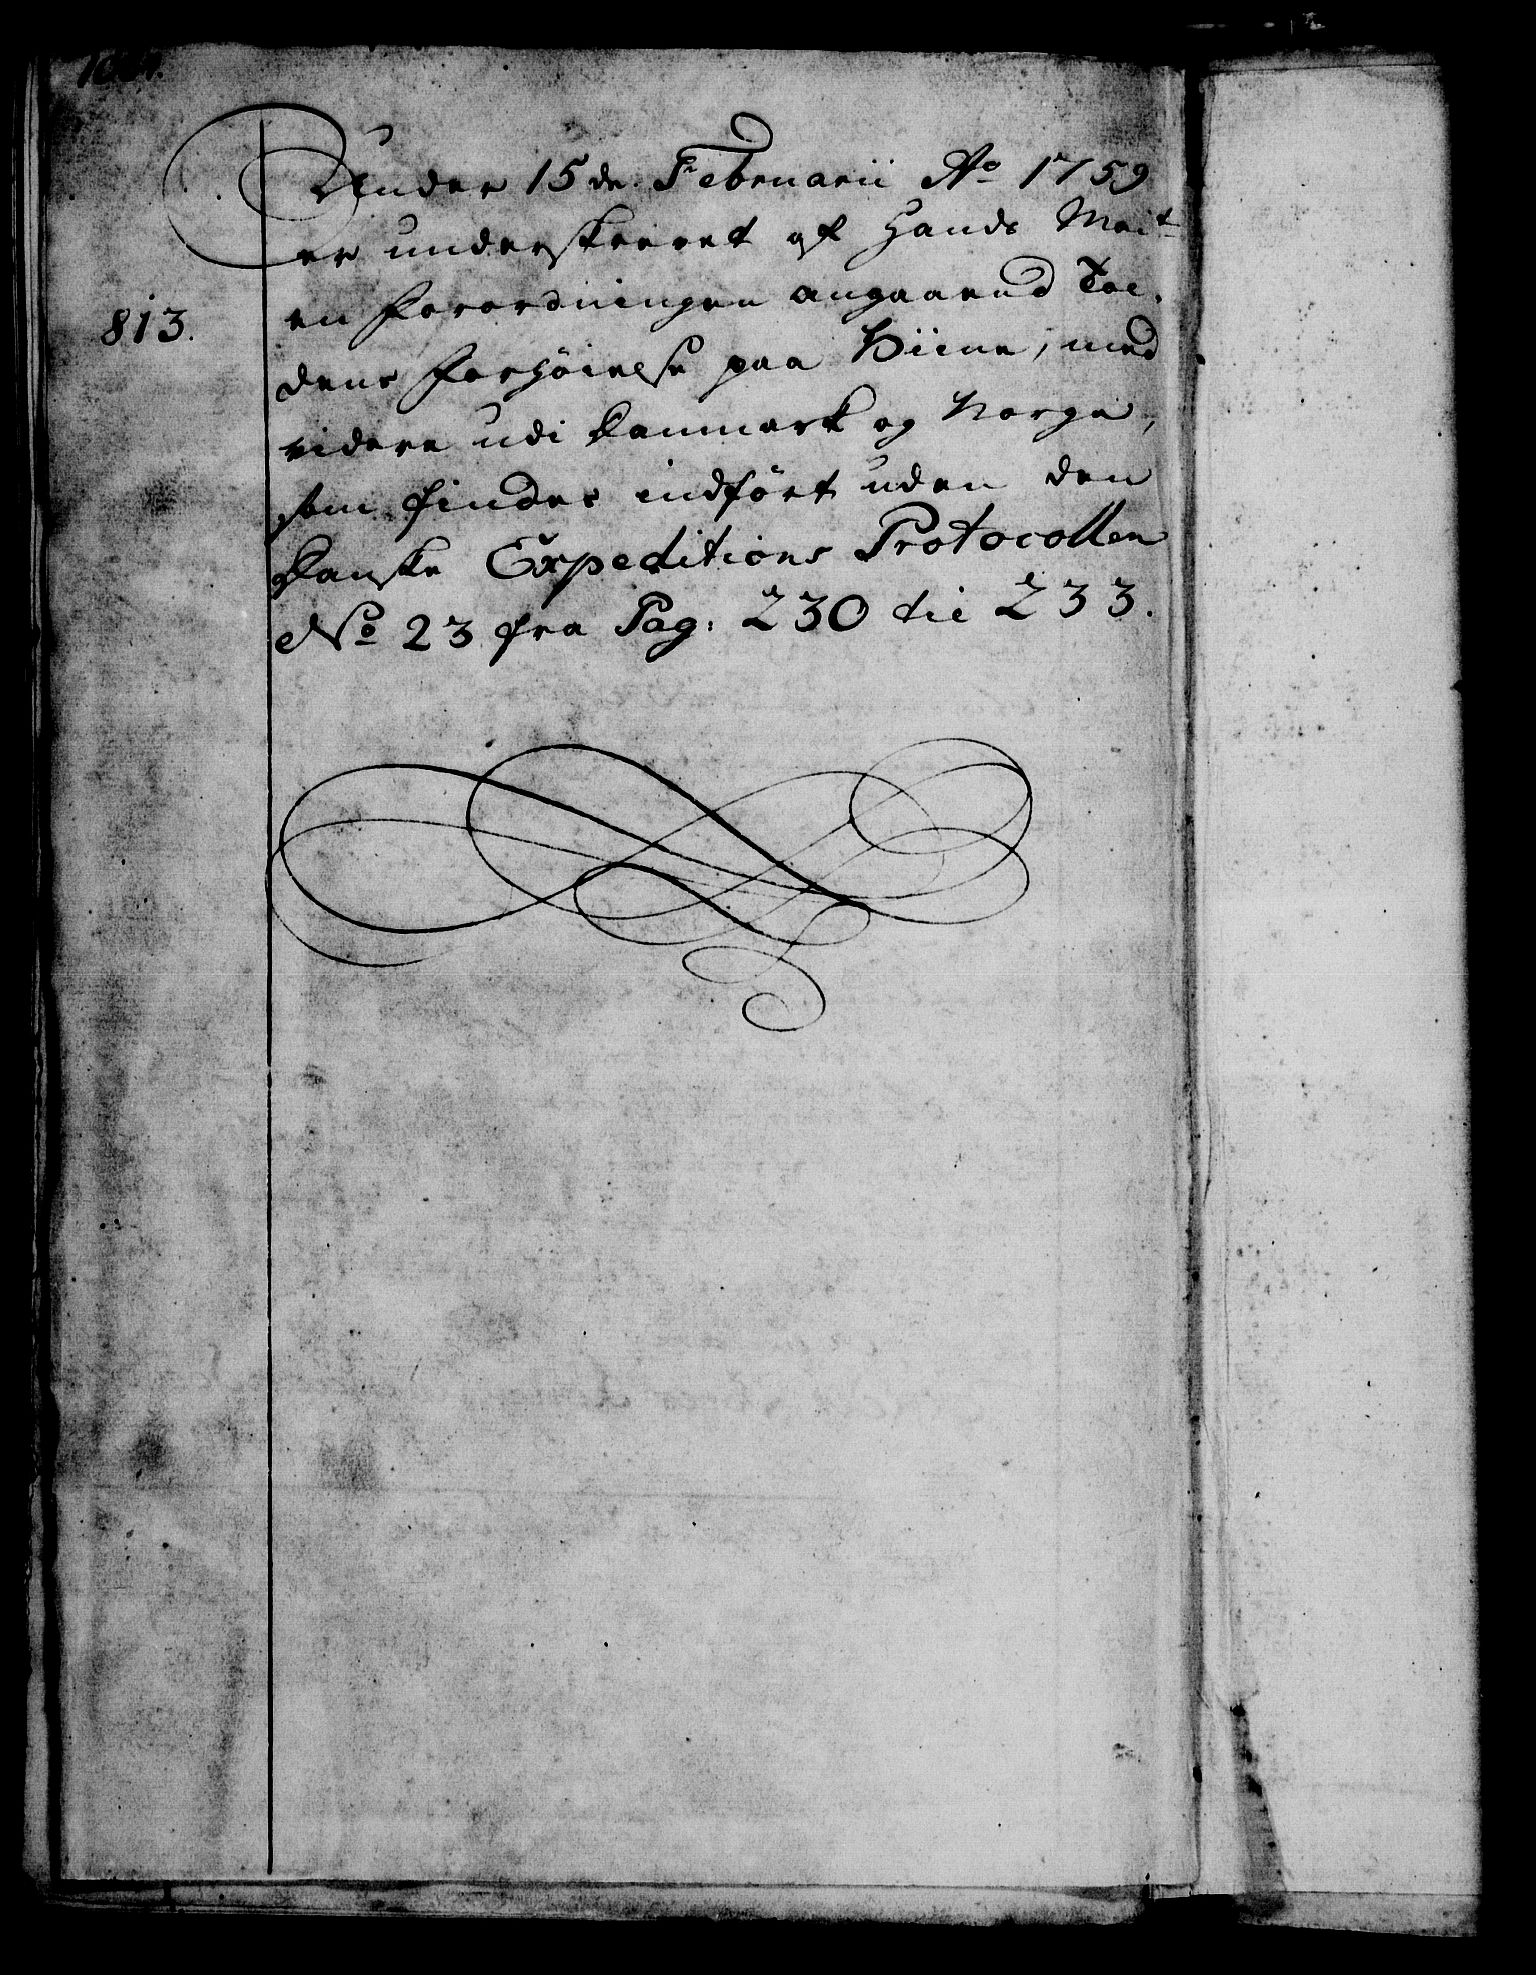 813.
Under 15de Februarii Ao 1759
er underskrevet af Hands Mait
en Forordningen angaaende Tol-
dens Forhøielse paa Viine, med
videre udi Danmark og Norge,
som findes indført uden den
Danske Expeditions Protocollen
No 23 fra Pag: 230 til 233.